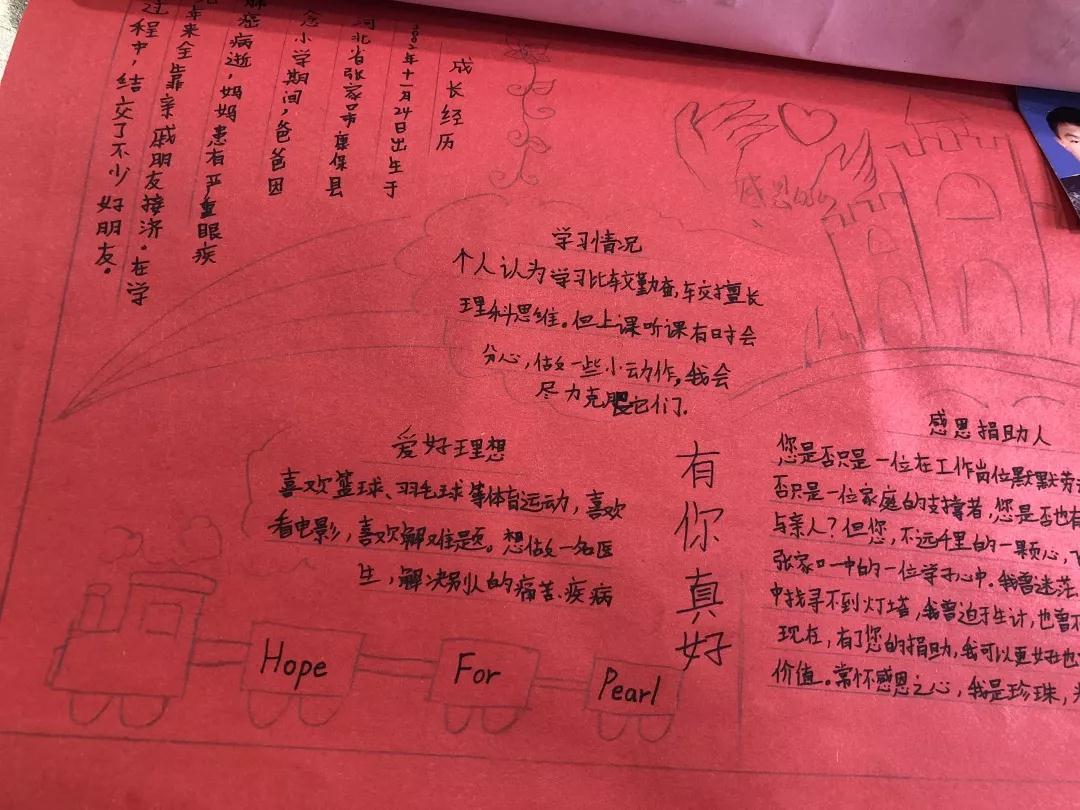 成长经历
2002年十一月24日出生于
河北省张家口市康保县
念小学期间,爸爸因
癌病逝,妈妈患有严重眼疾
年来全靠亲戚朋友接济。在学
过程中,结交了不少好朋友。
感恩的心
学习情况
个人认为学习比较勤奋,较擅长
理科思维。但上课听课有时会
分心,做一些小动作,我会
尽力克服它们.
爱好理想
喜欢篮球、羽毛球等体育运动,喜欢
看电影,喜欢解难题。想做一名医
生,解决别人的痛苦、疾病
有你真好
感恩捐助人
您是否只是一位在工作岗位默默劳
否只是一位家庭的支撑者,您是否也有
与亲人?但您,不远千里的一颗心,飞
张家口一中的一位学子心中。我曾迷茫
中找寻不到灯塔,我曾迫于生计,也曾不
现在,有了您的捐助,我可以更好地
价值。常怀感恩之心,我是珍珠,
Hope
For
Pearl